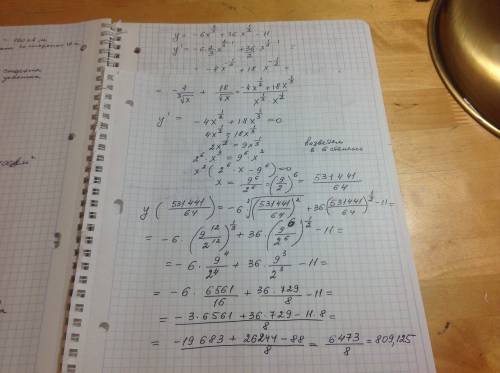 y = -6x^{2/3} + 36x^{1/2} - 11
y' = -6·2/3 x^{2/3 - 1} + 36/2 x^{1/2 - 1} =
= -4x^{-1/3} + 18x^{-1/2} =
= -4/∛x + 18/√x = (-4x^{1/2} + 18x^{1/3})/(x^{1/3}·x^{1/2})
y' = -4x^{1/2} + 18x^{1/3} = 0
4x^{1/2} = 18x^{1/3}
2x^{1/2} = 9x^{1/3} возведём
2^6·x^3 = 9^6·x^2 в 6 степень
x^2(2^6·x - 9^6) = 0
x = 9^6/2^6 = (9/2)^6 = 531441/64
y(531441/64) = -6∛((531441/64)^2) + 36(531441/64)^{1/2} - 11 =
= -6·(9^{12}/2^{12})^{1/3} + 36·(9^6/2^6)^{1/2} - 11 =
= -6·9^4/2^4 + 36·9^3/2^3 - 11 =
= -6·6561/16 + 36·729/8 - 11 =
= (-3·6561 + 36·729 - 11·8)/8 =
= (-19683 + 26244 - 88)/8 = 6473/8 = 809,125